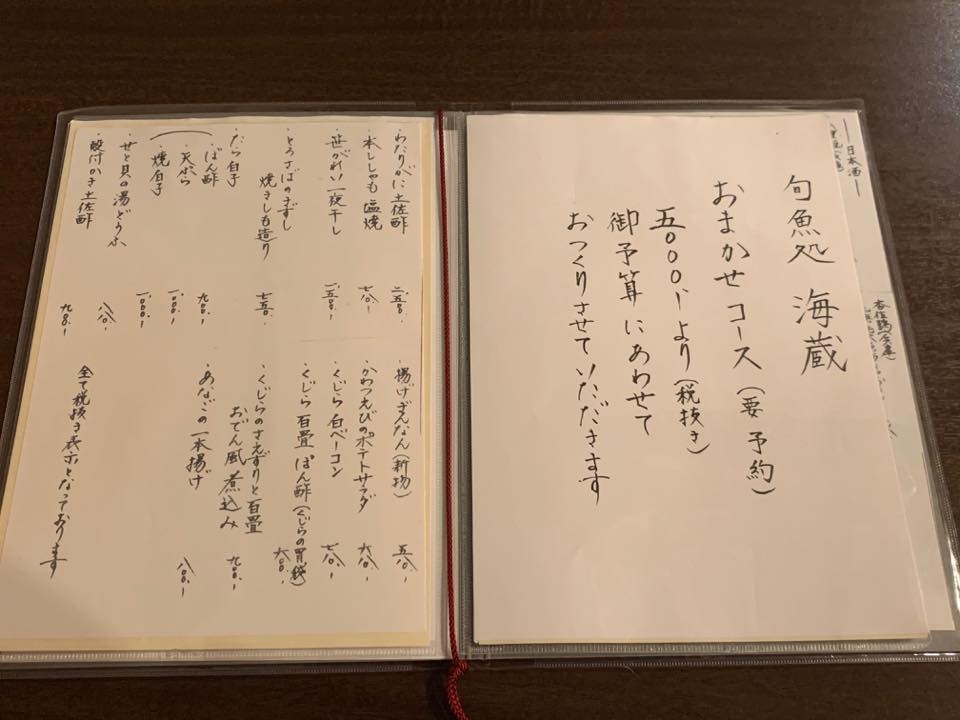 旬魚処 海蔵
おまかせコース(要予約)
五〇〇〇いより(税抜き)
御予算にあわせて
おつくりさせていただきます
ー日本酒ー
・わたりがに土佐酢 二、五〇〇.-
・本ししゃも塩焼 七八〇.-
・笹がれい一夜干し 一、五〇〇.-
・とろさばのきずし
焼きしも造り 七五〇.-
・たら白子
ぽん酢 九〇〇.-
・天ぷら 一、〇〇〇.-
・焼白子 一、〇〇〇.-
・せと貝の湯どうふ 八八〇.-
・殻付かき土佐酢 九八〇.-
・揚げぎんなん(新物) 五八〇.-
・かわつえびのポテトサラダ 六八〇.-
・くじら白ベーコン 七八〇.-
・くじら百畳ぽん酢(くじらの胃袋) 六〇〇.-
・くじらのさえずりと百畳
おでん風煮込み 九〇〇.-
・あなごの一本揚げ 八〇〇.-
全て税抜き表示となっております